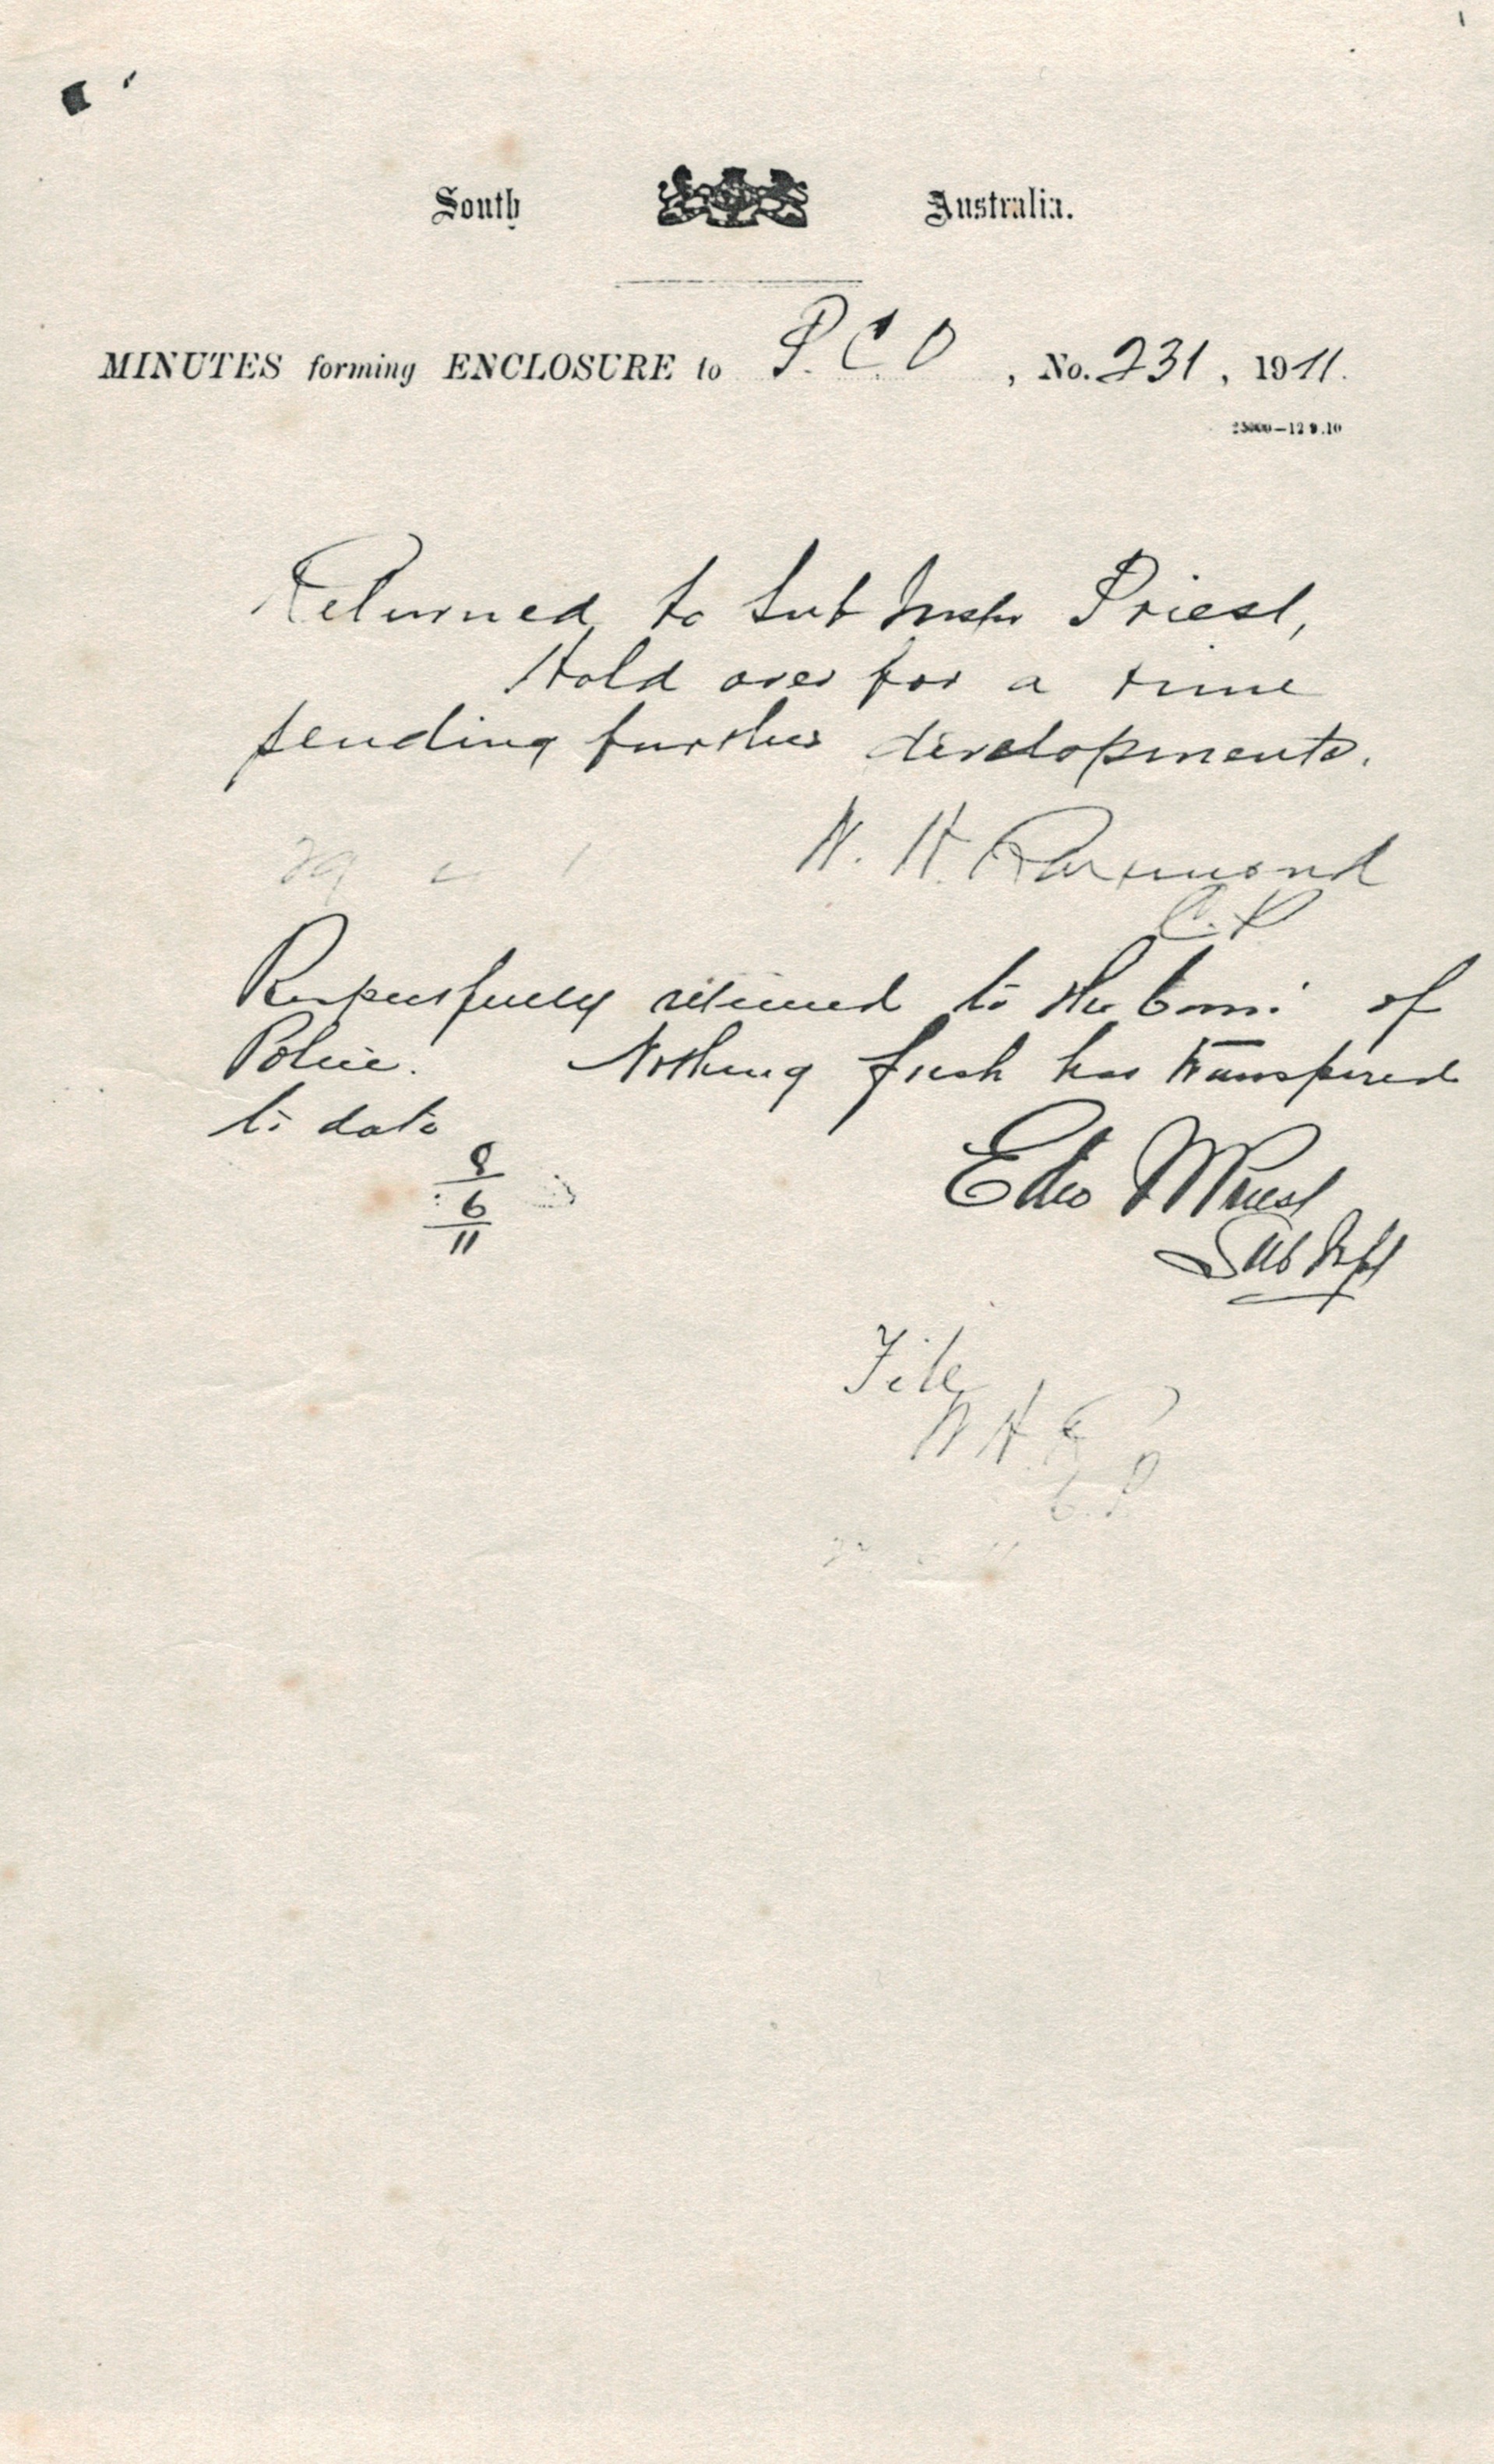 South Australia.
MINUTES forming ENCLOSURE to P.C.O, No. 231, 1911.
25000—12.9.10
Returned to Sub Inspr Priest,
Hold over for a time
pending further developments.
W. H. Raymond
C.P
Respectfully returned to the Com: of
Police. Nothing fresh has transpired
to date
8
6
11
Edwd Priest
Sub Insp
File
W H R
C.P